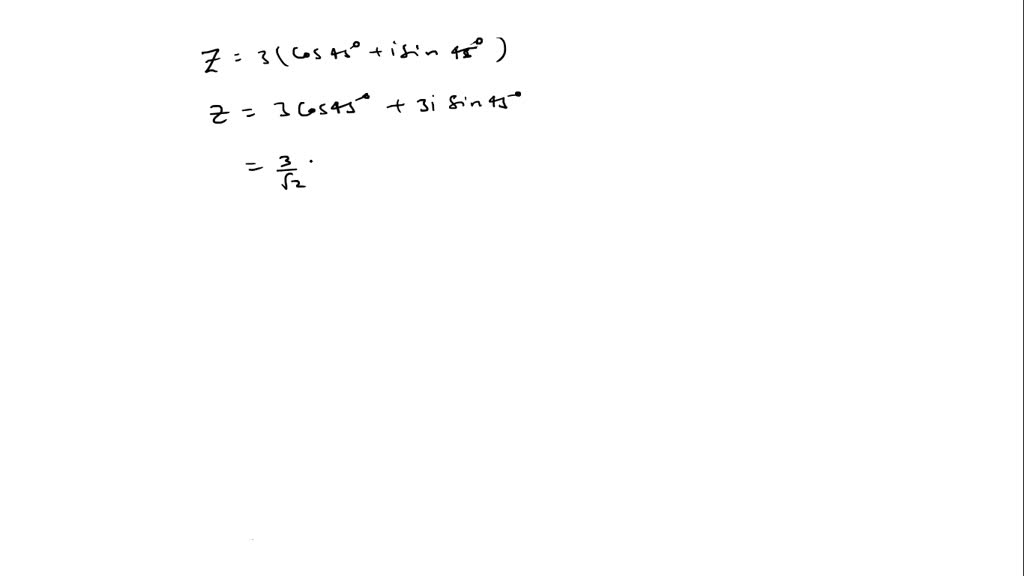 Z = 3(cos 45° + i sin 45°)
Z = 3 cos 45° + 3i sin 45°
= 3/√2